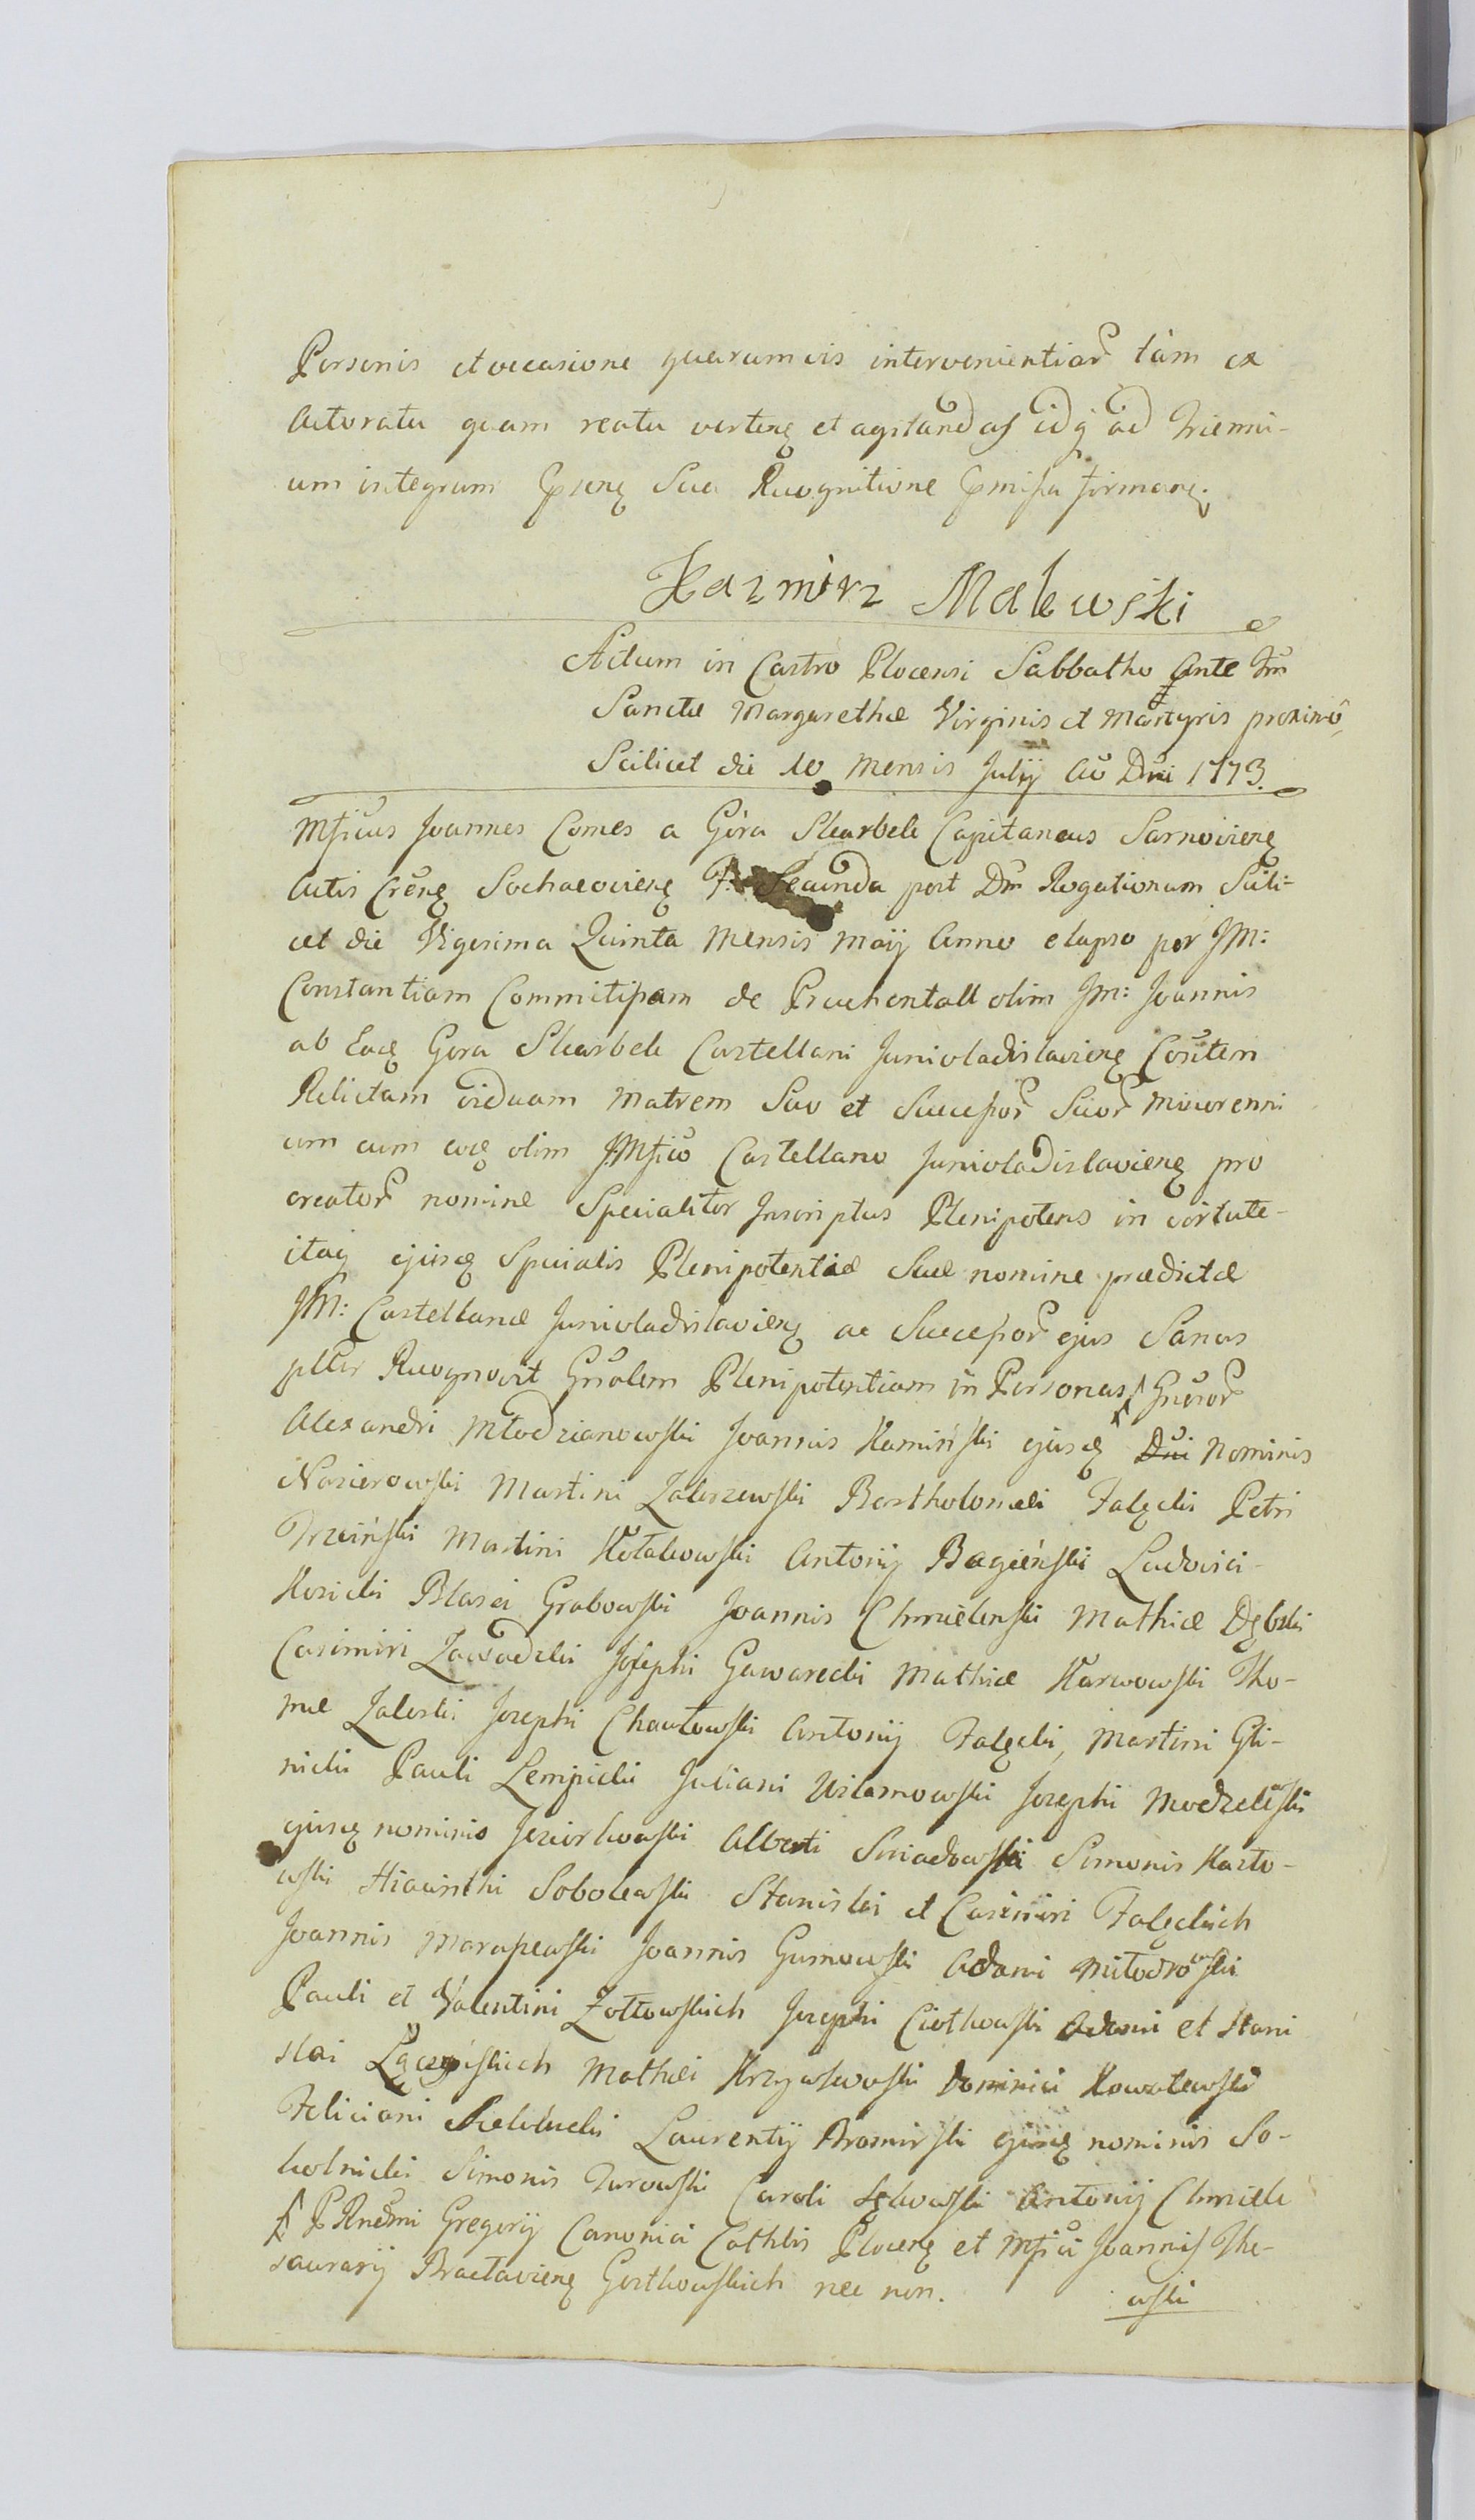 Personis et occasione quarumvis intervenientiar tàm ex
Actoratu quam reatu verteñ et agitandas idq ad Trienni-
um integrum Pñseñ Sua Recognitione Pmissa firmañ.
Kazmirz Malewski
Actum in Castro Plocensi Sabbatho Ante Ftm
Sanctæ Margarethæ Virginis et Martyris proximo,
Scilicet die 10 Mensis Julij Ao Dni 1773.
Mficus Joannes Comes a Góra Skarbek Capitaneus
Actis Creñ Sochacovieñ F. Secunda post Dm Rogationum Scili-
cet die Vigesima Quinta Mensis Maij Anno elapso per JM:
Constantiam Commitissam de olim JM: Joannis
ab Eadē Gora Skarbek Castellani Juniwladislavieñ Cositem
Relictam viduam Matrem Suo et Successor Suor Minorenni
um cum eodē olim JMfico Castellano Juniwladislavieñ pro
creator nomine Specialiter Inscriptus Plenipotens in virtute-
itaq ejusdē Specialis Plenipotentiæ Suæ nomine prædictæ
JM: Castellanæ Juniwladislavieñ ac Successor ejus Sanus
pltr Recognovit Gñalem Plenipotentiam in Personas Gñeror
Alexandri Młodzianowski Joannis Kamiński ejusdē Dni Nominis
Nasierowski Martini Zaleszewski Bartholomæi Falęcki Petri
Trzciński Martini Kołakowski Antonij Bagieński Ludovici-
Kosicki Blasei Grabowski Joannis Chmielenski Mathiæ Dębski
Casimiri Zawadzki Josephi Gawarecki Mathiæ Karwowski Tho-
mæ Zaleski Josephi Antonij Falęcki, Martini Gli-
nicki Pauli Lempicki Juliani Wilamowski Josephi Modzelewski
ejusdē nominis Jeziorkowski Alberti Sniadowski Simonis Kosto-
wski Hiacinthi Sobolewski Stanislai et Casimiri Falęckich
Joannis Joannis Gumowski Adami Miłodrowski
Pauli et Valentini Żółtowskich Josephi Ciołkowski Adami et Stani
slai Łączyńskich Mathæi Dominici Kowalewski
Feliciani Laurentij Bromirski ejusdē nominis So-
kolnicki Simonis Turowski Caroli Łękowski Antonij Chmiele
PRndmi Gregorij Canonici Cathlis Ploceñ et Mfici Joannis The-
saurarij Braclavieñ Gostkowskich nec non.
wski